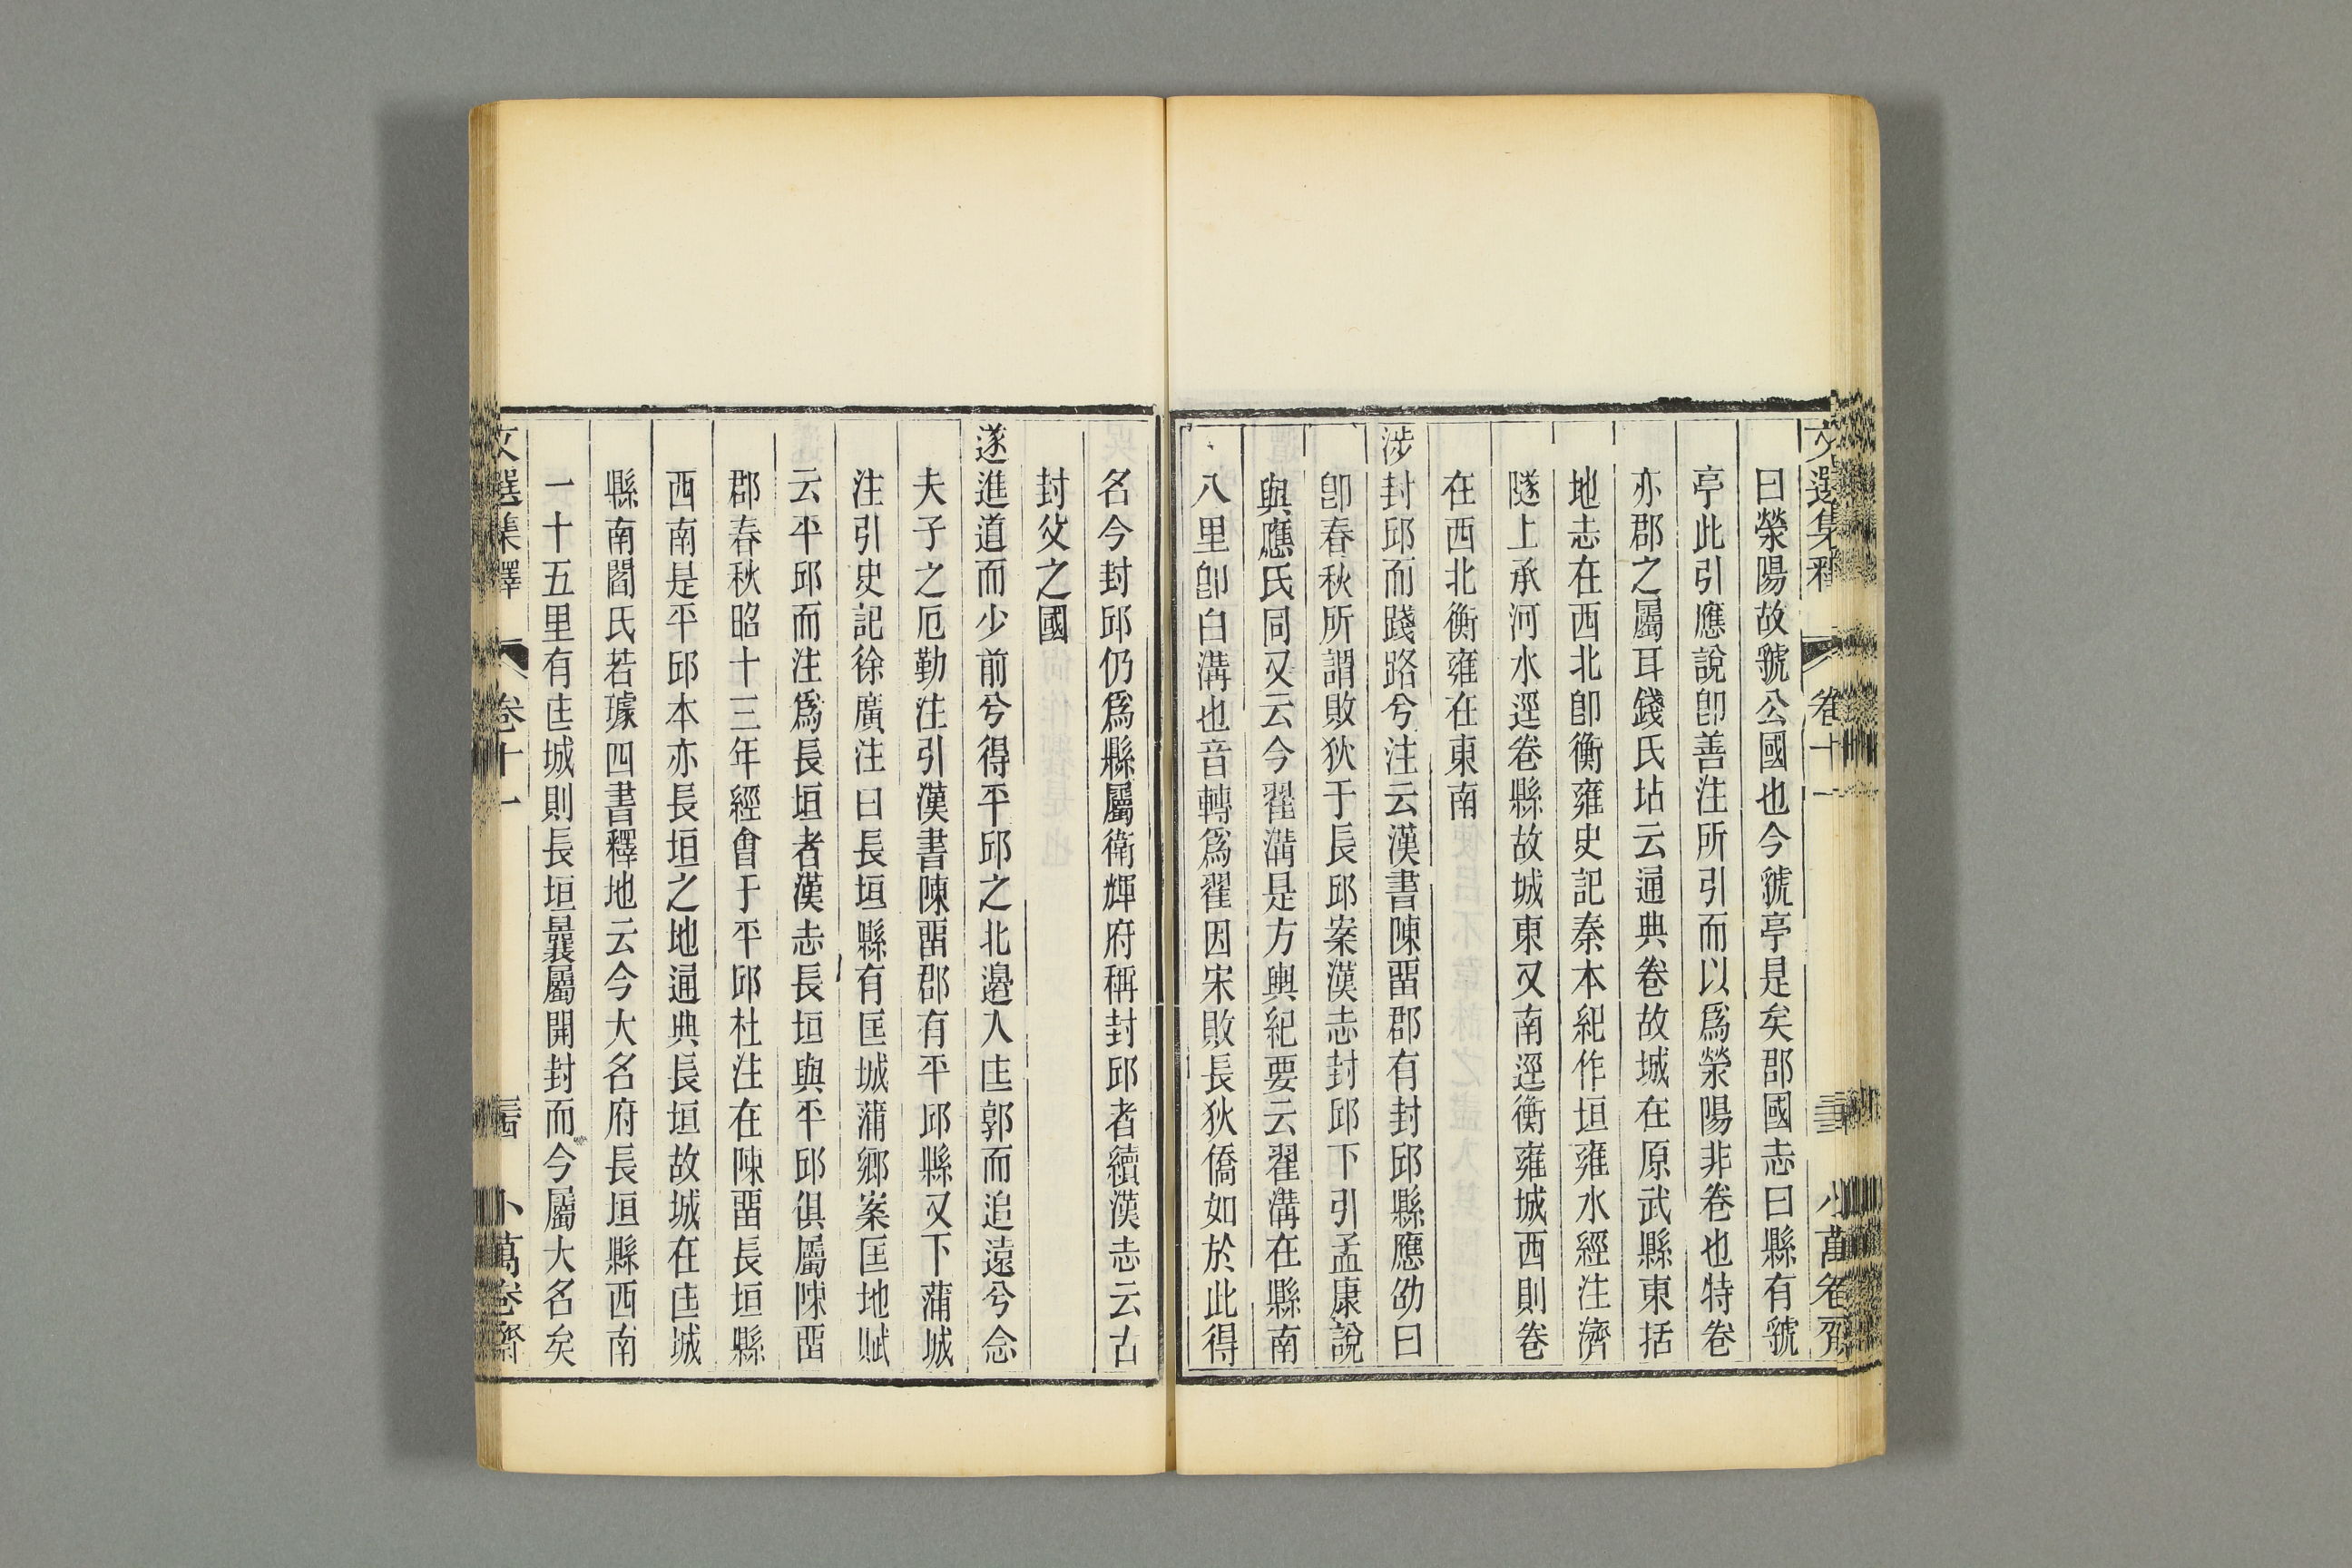 文選集釋 卷十一 小萬卷齋
曰滎陽故虢公國也今虢亭是矣郡國志曰縣有虢
亭此引應說卽善注所引而以爲滎陽非卷也特卷
亦郡之屬耳錢氏坫云通典卷故城在原武縣東括
地志在西北卽衡雍史記秦本紀作垣雍水經注濟
隧上承河水逕卷縣故城東又南逕衡雍城西則卷
在西北衡雍在東南
涉封邱而踐路兮注云漢書陳畱郡有封邱縣應劭曰
卽春秋所謂敗狄于長邱案漢志封邱下引孟康說
與應氏同又云今翟溝是方輿紀要云翟溝在縣南
八里卽白溝也音轉爲翟因宋敗長狄僑如於此得
名今封邱仍爲縣屬衛輝府稱封邱者續漢志云古
封父之國
遂進道而少前兮得平邱之北邊入𠥓郭而追遠兮念
夫子之厄勤注引漢書陳畱郡有平邱縣又下蒲城
注引史記徐廣注曰長垣縣有匡城蒲鄉案匡地賦
云平邱而注爲長垣者漢志長垣與平邱俱屬陳畱
郡春秋昭十三年經會于平邱杜注在陳畱長垣縣
西南是平邱本亦長垣之地通典長垣故城在𠥓城
縣南閻氏若璩四書釋地云今大名府長垣縣西南
一十五里有𠥓城則長垣曩屬開封而今屬大名矣
文選集釋 卷十一 三四 小萬卷齋